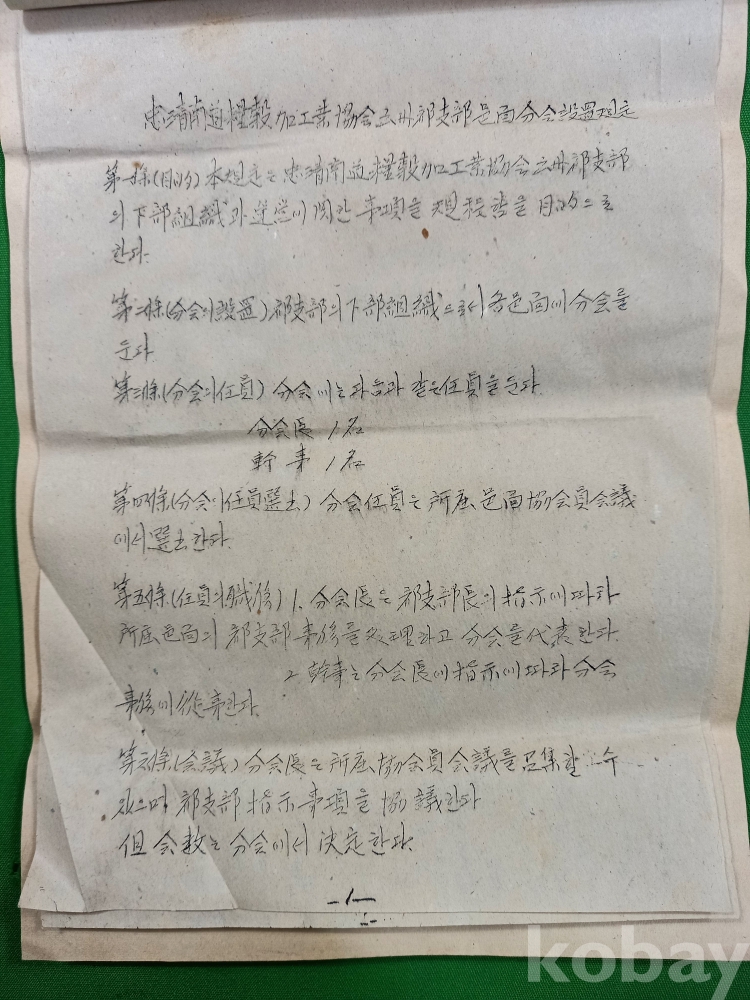 忠淸南道糧穀加工業協会 郡支部邑面分会設置規定
第一條(目的) 本規定은 忠淸南道糧穀加工業協会 郡支部
의 下部組織과 運営에 関한 事項을 規程함을 目的으로
한다.
第二條(分会의 設置) 郡支部의 下部組織으로서 各邑面에 分会를
둔다
第三條(分会의 任員) 分会에는 다음과 같은 任員을 둔다.
分会長 1名
幹事 1名
第四條(分会의 任員選出) 分会任員은 所属邑面協会員会議
에서 選出한다.
第五條(任員의 職務) 1. 分会長은 郡支部長의 指示에 따라
所属邑面의 郡支部事務를 処理하고 分会를 代表한다.
2 幹事는 分会長에 指示에 따라 分会
事務에 従事한다.
第六條(会議) 分会長은 所属 協会員会議를 召集할 수
있으며 郡支部 指示事項을 協議한다
但 会数는 分会에서 決定한다.
-1-
kobay